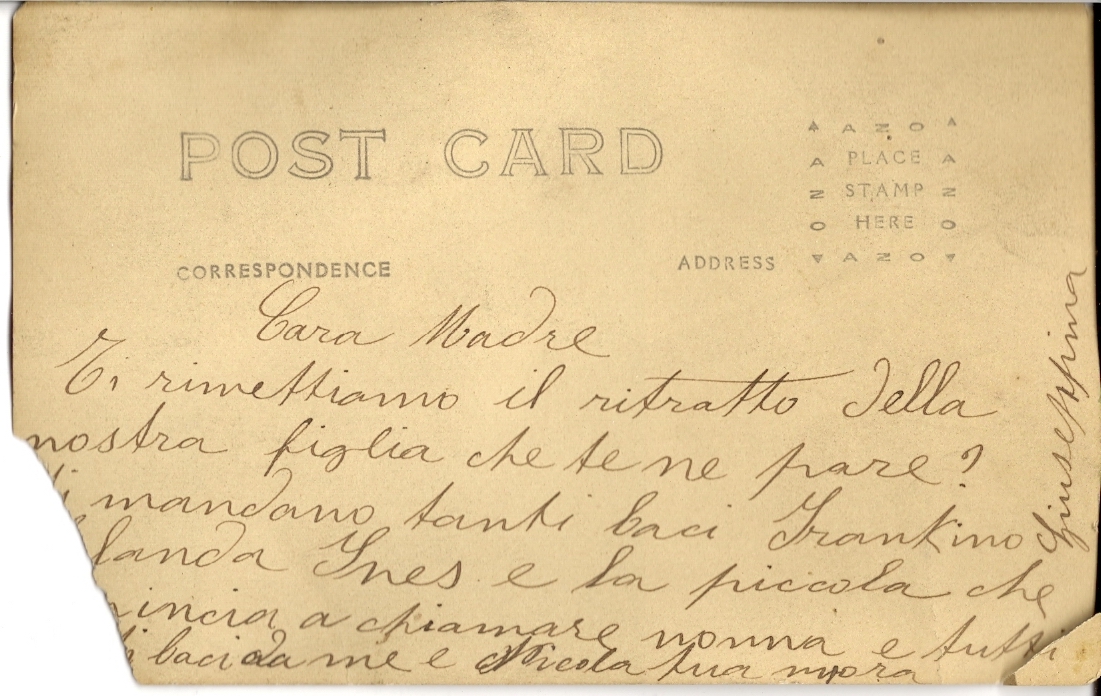 POST CARD
AZO
PLACE
STAMP
HERE
AZO
CORRESPONDENCE
ADDRESS
Cara Madre
Ti rimettiamo il ritratto della
nostra figlia che te ne pare?
Ti mandano tanti baci Frankino
landa Ines e la piccola che
incia a chiamare nonna e tutti
ti baci da me e Nicola tua nuora
Giuseppina